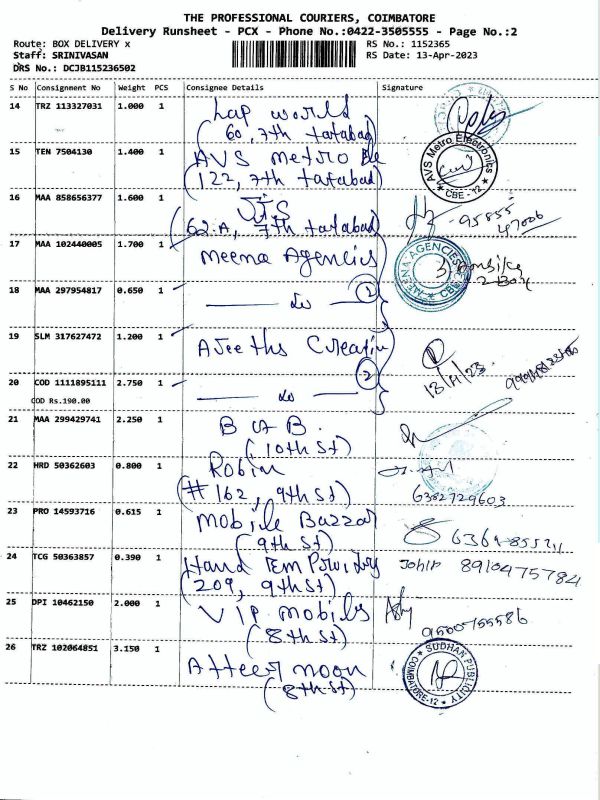 THE PROFESSIONAL COURIERS, COIMBATORE
Delivery Runsheet - PCX - Phone No.:0422-3505555 - Page No.:2
Route: BOX DELIVERY x RS No.: 1152365
Staff: SRINIVASAN RS Date: 13-Apr-2023
DRS No.: DCJB115236502
S No Consignment No Weight PCS Consignee Details Signature
14 TRZ 113327031 1.000 1 Lap world
(60, 7th tatabad)
15 TEN 7504130 1.400 1 AVS Metro
(122, 7th tatabad)
AVS Metro Electronics
★ CBE-12 ★
16 MAA 858656377 1.600 1
(62.A, 7th tatabad) 95855
47006
17 MAA 102440005 1.700 1 Meena Agencies
MEENA AGENCIES
★ CBE
2 Box
18 MAA 297954817 0.650 1 do 1
19 SLM 317627472 1.200 1 Ajeeths Creation
13/4/23
20 COD 1111895111 2.750 1 do 2
COD Rs.190.00
21 MAA 299429741 2.250 1 B & B
(10th St)
22 HRD 50362603 0.800 1 Robin
(# 162, 9th St) 6382729603
23 PRO 14593716 0.615 1 Mobile Bazzar
(9th St)
24 TCG 50363857 0.390 1 8910475784
(209, 9th St)
25 DPI 10462150 2.000 1 VIP mobiles
(8th St) 9500755586
26 TRZ 102064851 3.150 1 Atteer noon
(8th St)
SUDHAN PUBLICITY
COIMBATORE-12